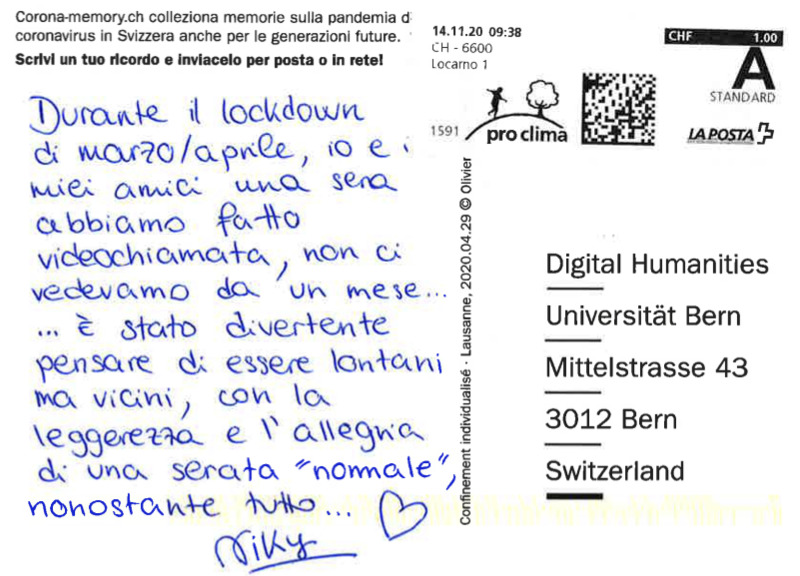 Corona-memory.ch colleziona memorie sulla pandemia d
coronavirus in Svizzera anche per le generazioni future.
Scrivi un tuo ricordo e inviacelo per posta o in rete!
Durante il lockdown
di marzo/aprile, io e i
miei amici una sera
abbiamo fatto
videochiamata, non ci
vedevamo da un mese...
... È stato divertente
pensare di essere lontani
ma vicini, con la
leggerezza e l'allegria
di una serata "normale",
nonostante tutto... ♡
Niky
14.11.20 09:38
CH - 6600
Locarno 1
CHF 1.00
A
STANDARD
1591 pro clima
LA POSTA
Confinement individualisé · Lausanne, 2020.04.29 © Olivier
Digital Humanities
Universität Bern
Mittelstrasse 43
3012 Bern
Switzerland